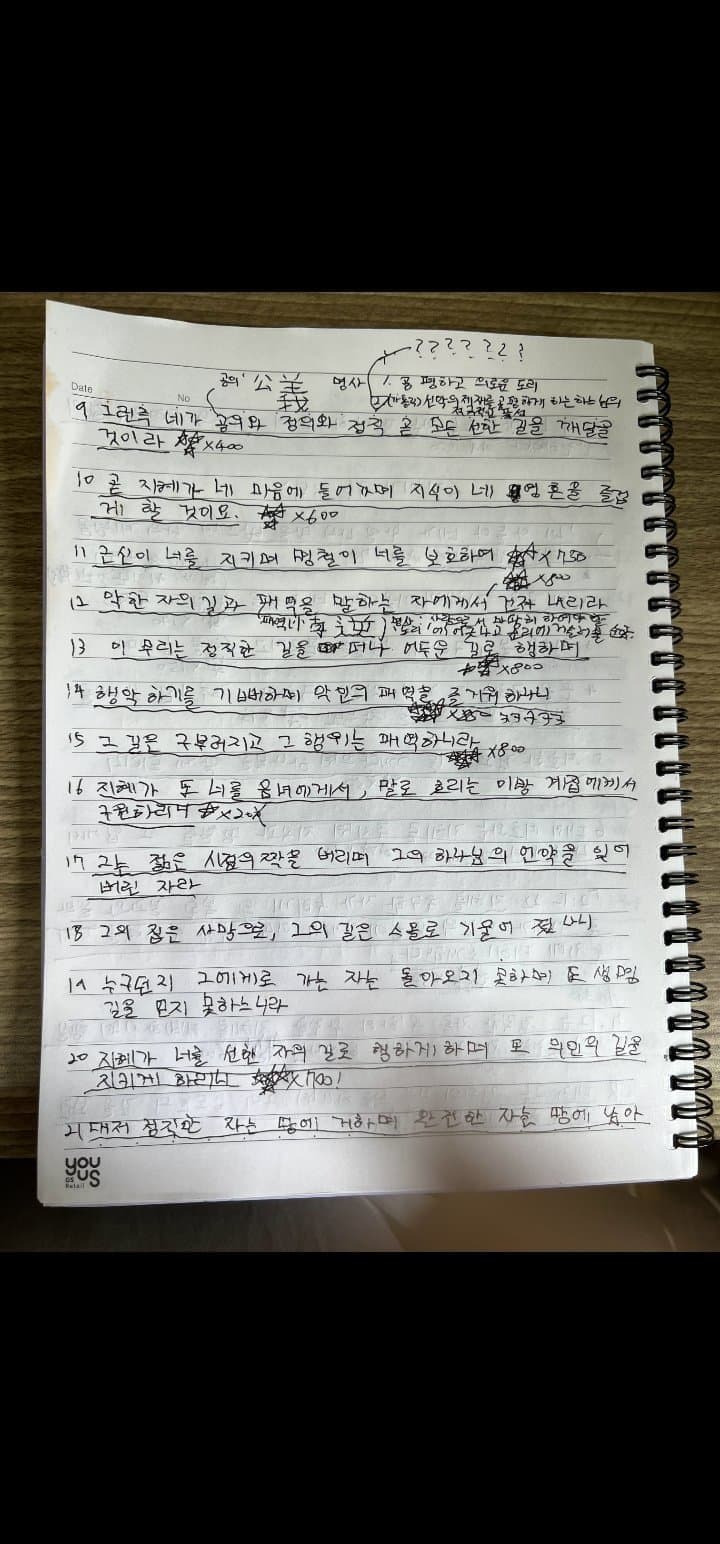 ???????
Date
No
공의 公義 명사 1. 공평하고 의로운 도리
2. (가톨릭) 선악의 제재를 공평하게 하는 하느님의
적극적 품성
9 그런즉 네가 공의와 정의와 정직 곧 모든 선한 길을 깨달을
것이라 ×400
10 곧 지혜가 네 마음에 들어가며 지식이 네 영혼을 즐겁
게 할 것이요. ×600
11 근신이 너를 지키며 명철이 너를 보호하여 ×750
×800
12 악한 자의 길과 패역을 말하는 자에게서 건져 내리라
패역 명사: 사람으로서 마땅히 하여야 할
도리에 어긋나고 순리에
13 이 무리는 정직한 길을 떠나 어두운 길로 행하며
×800
14 행악하기를 기뻐하며 악인의 패역을 즐거워하나니
15 그 길은 구부러지고 그 행위는 패역하니라
×800
16 지혜가 또 너를 음녀에게서, 말로 호리는 이방 계집에게서
구원하리니
17 그는 젊은 시절의 짝을 버리며 그의 하나님의 언약을 잊어
버린 자라
18 그의 집은 사망으로, 그의 길은 스올로 기울어 졌나니
19 누구든지 그에게로 가는 자는 돌아오지 못하며 또 생명
길을 얻지 못하느니라
20 지혜가 너를 선한 자의 길로 행하게 하며 또 의인의 길을
지키게 하리니 ×700!
21 대저 정직한 자는 땅에 거하며 완전한 자는 땅에 남아
you
us
GS
Retail